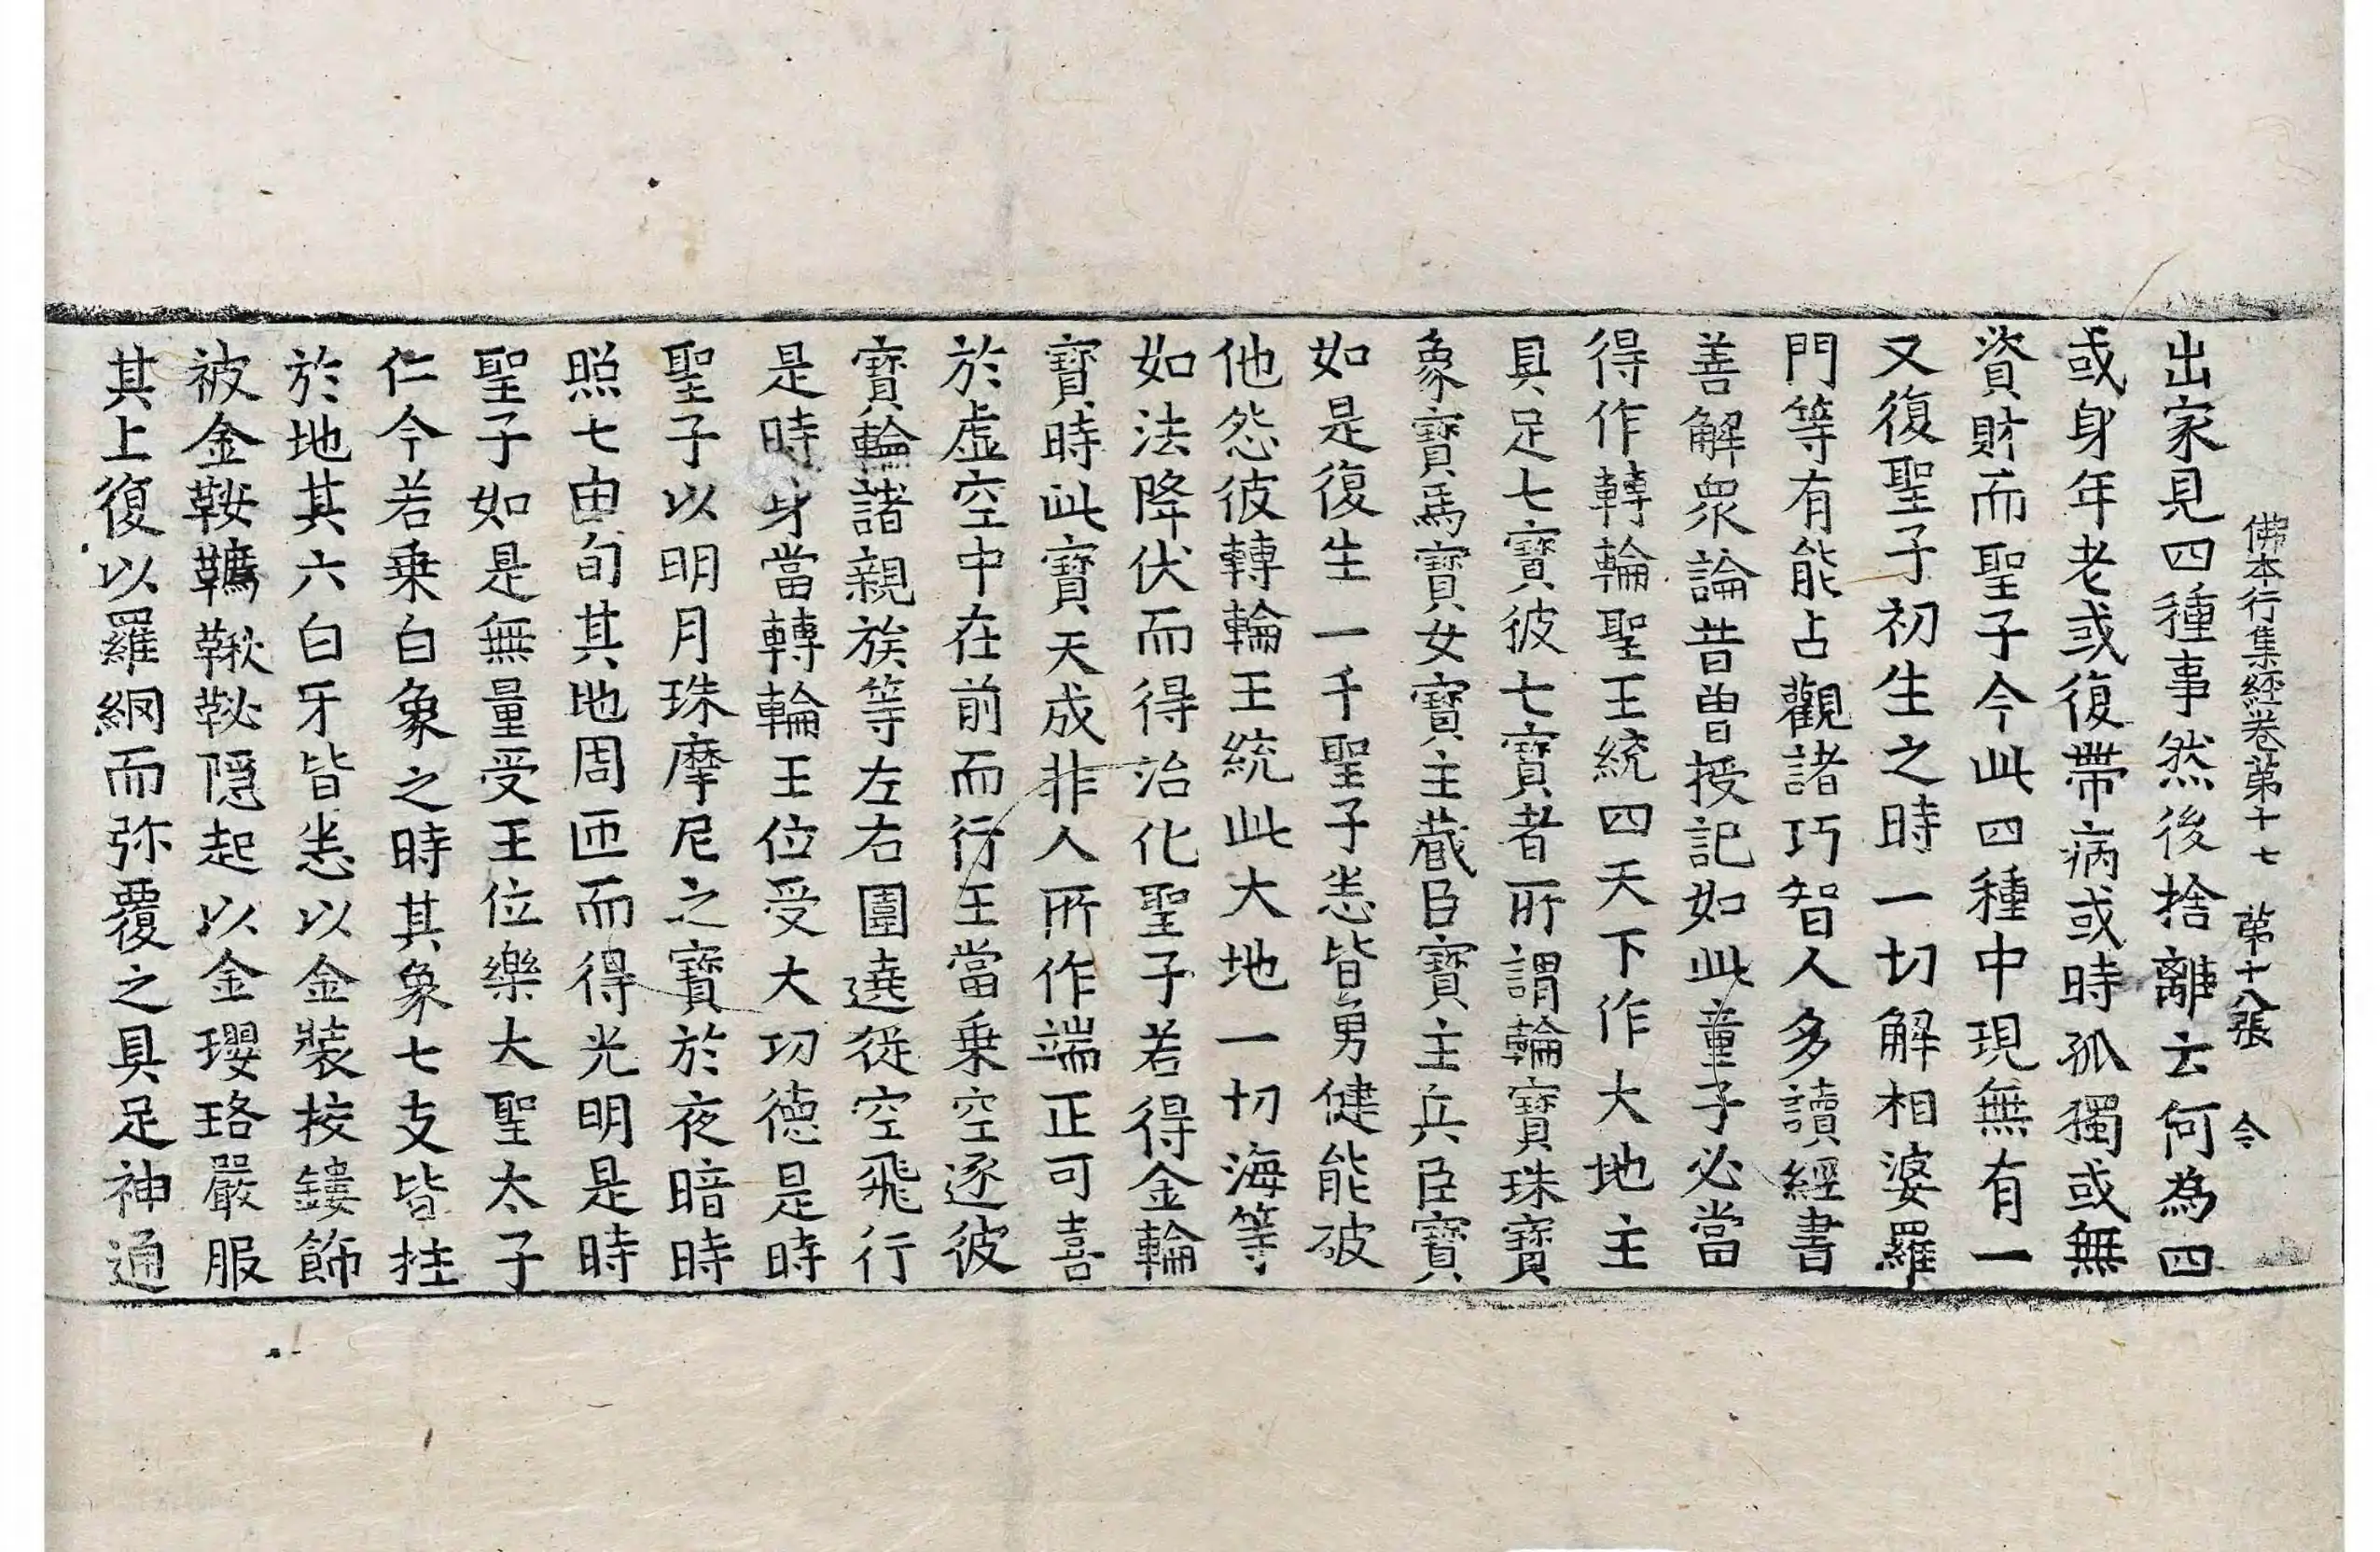 佛本行集經卷第十七　第十八張　令
出家見四種事然後捨離云何為四
或身年老或復帶病或時孤獨或無
資財而聖子今此四種中現無有一
又復聖子初生之時一切解相婆羅
門等有能占觀諸巧智人多讀經書
善解衆論昔曽授記如此童子必當
得作轉輪聖王統四天下作大地主
具足七寶彼七寶者所謂輪寶珠寶
象寶馬寶女寶主蔵臣寶主兵臣寶
如是復生一千聖子悉皆勇健能破
他怨彼轉輪王統此大地一切海等
如法降伏而得治化聖子若得金輪
寶時此寶天成非人所作端正可喜
於虛空中在前而行王當乗空逐彼
寶輪諸親族等左右圍遶從空飛行
是時身當轉輪王位受大功德是時
聖子以明月珠摩尼之寶於夜暗時
照七由旬其地周匝而得光明是時
聖子如是無量受王位樂大聖太子
仁今若乗白象之時其象七支皆拄
於地其六白牙皆悉以金裝挍鏤飾
被金鞍韉鞦䩛隱起以金瓔珞嚴服
其上復以羅網而弥覆之具足神通